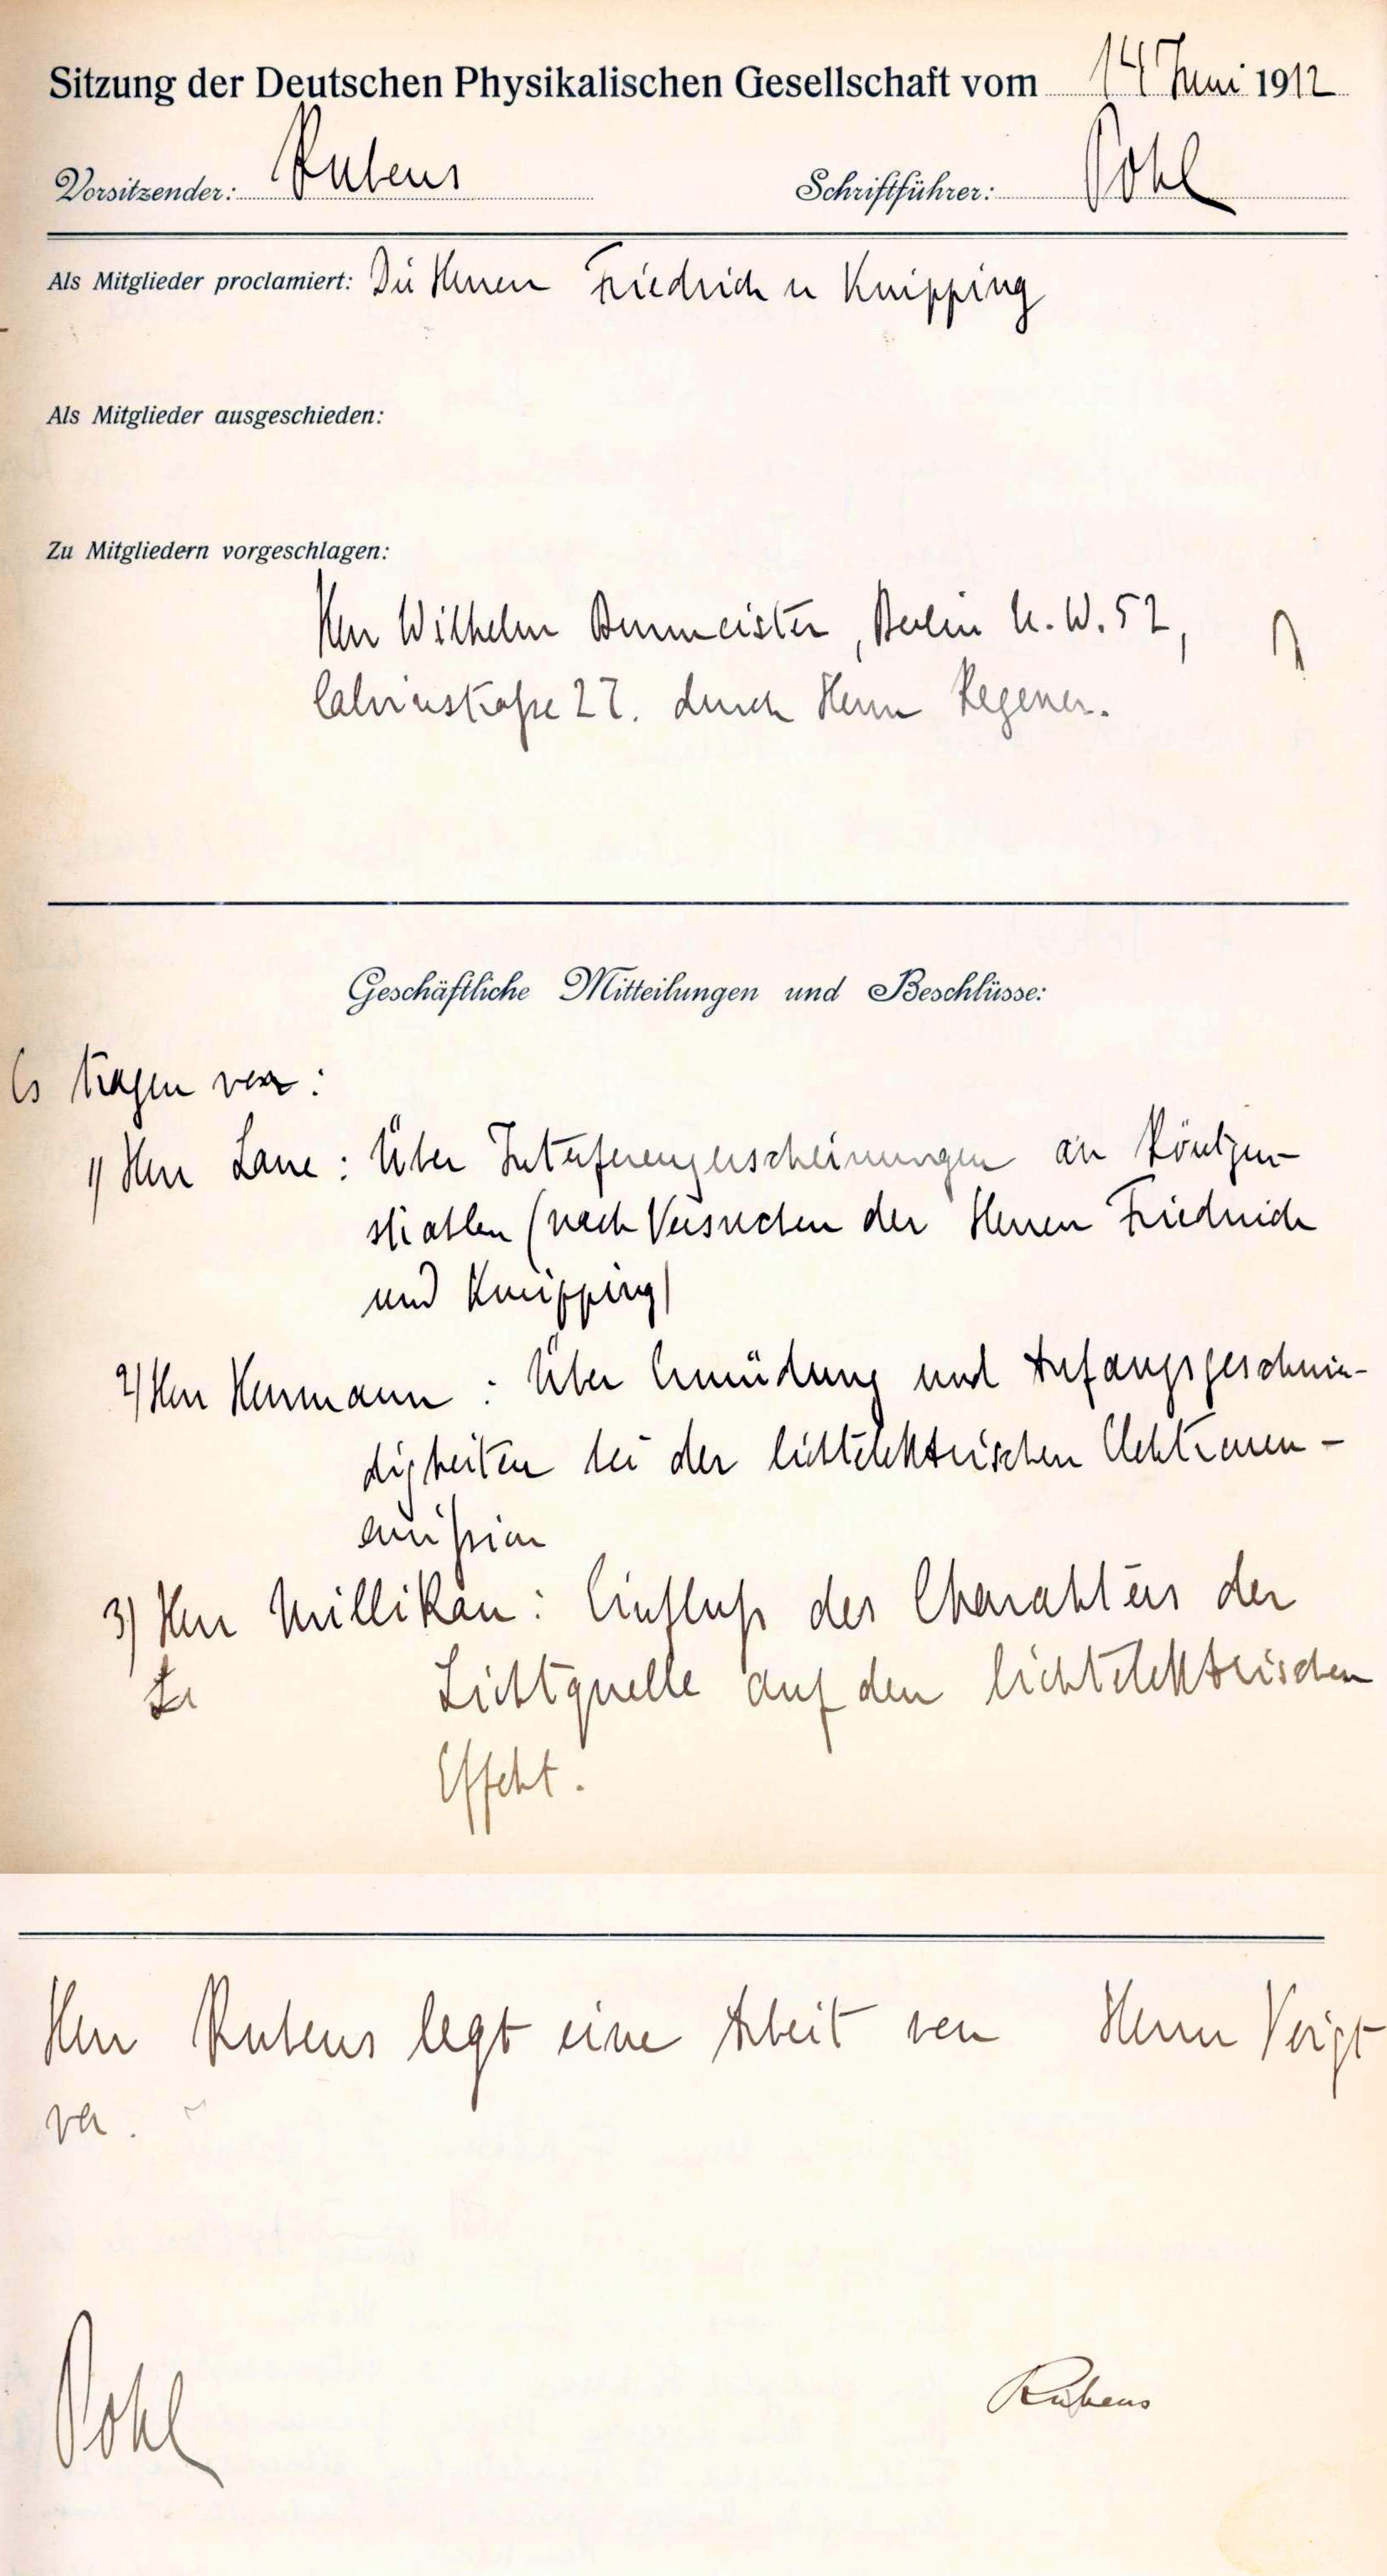 Sitzung der Deutschen Physikalischen Gesellschaft vom 14 Juni 1912
Vorsitzender: Rubens Schriftführer: Pohl
Als Mitglieder proclamiert: Die Herren Friedrich u Knipping
Als Mitglieder ausgeschieden:
Zu Mitgliedern vorgeschlagen:
Herr Wilhelm Burmeister, Berlin N.W. 52,
Calvinstraße 27. durch Herrn Regener.
Geschäftliche Mitteilungen und Beschlüsse:
Es tragen vor:
1) Herr Laue: Über Interferenzerscheinungen an Röntgen-
strahlen (nach Versuchen der Herren Friedrich
und Knipping)
2) Herr Hermann: Über Ermüdung und Anfangsgeschwin-
digkeiten bei der lichtelektrischen Elektronen-
emißion
3) Herr Millikan: Einfluß des Charakters der
Lichtquelle auf den lichtelektrischen
Effekt.
Herr Rubens legt eine Arbeit von Herrn Voigt
vor.
Pohl Rubens